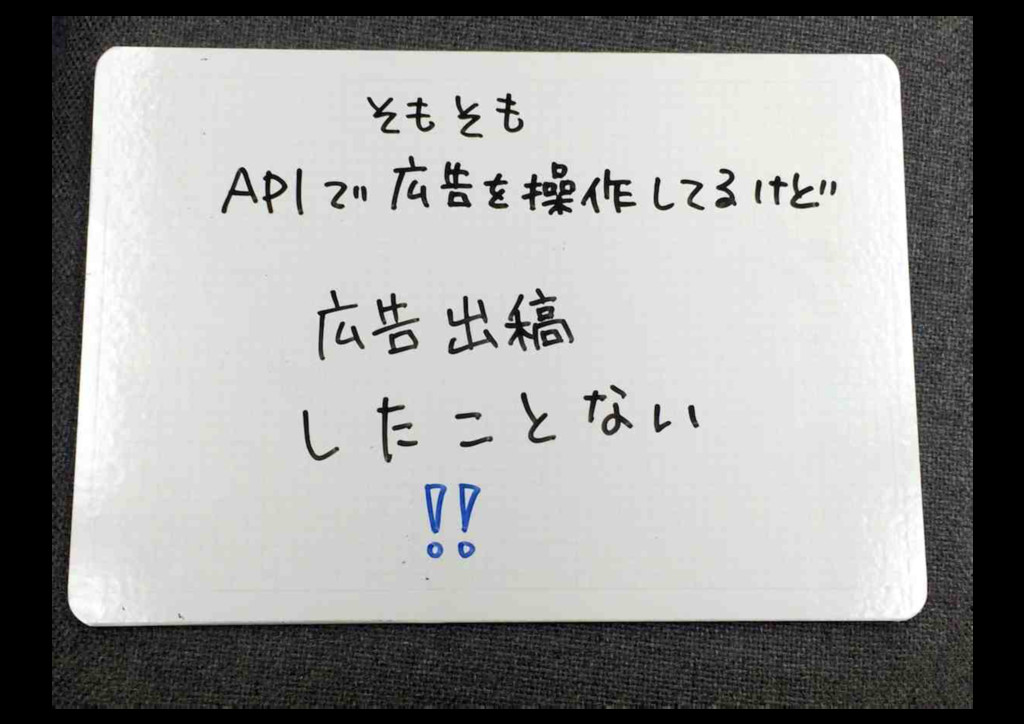 そもそも
APIで広告を操作してるけど
広告出稿
したことない
!!